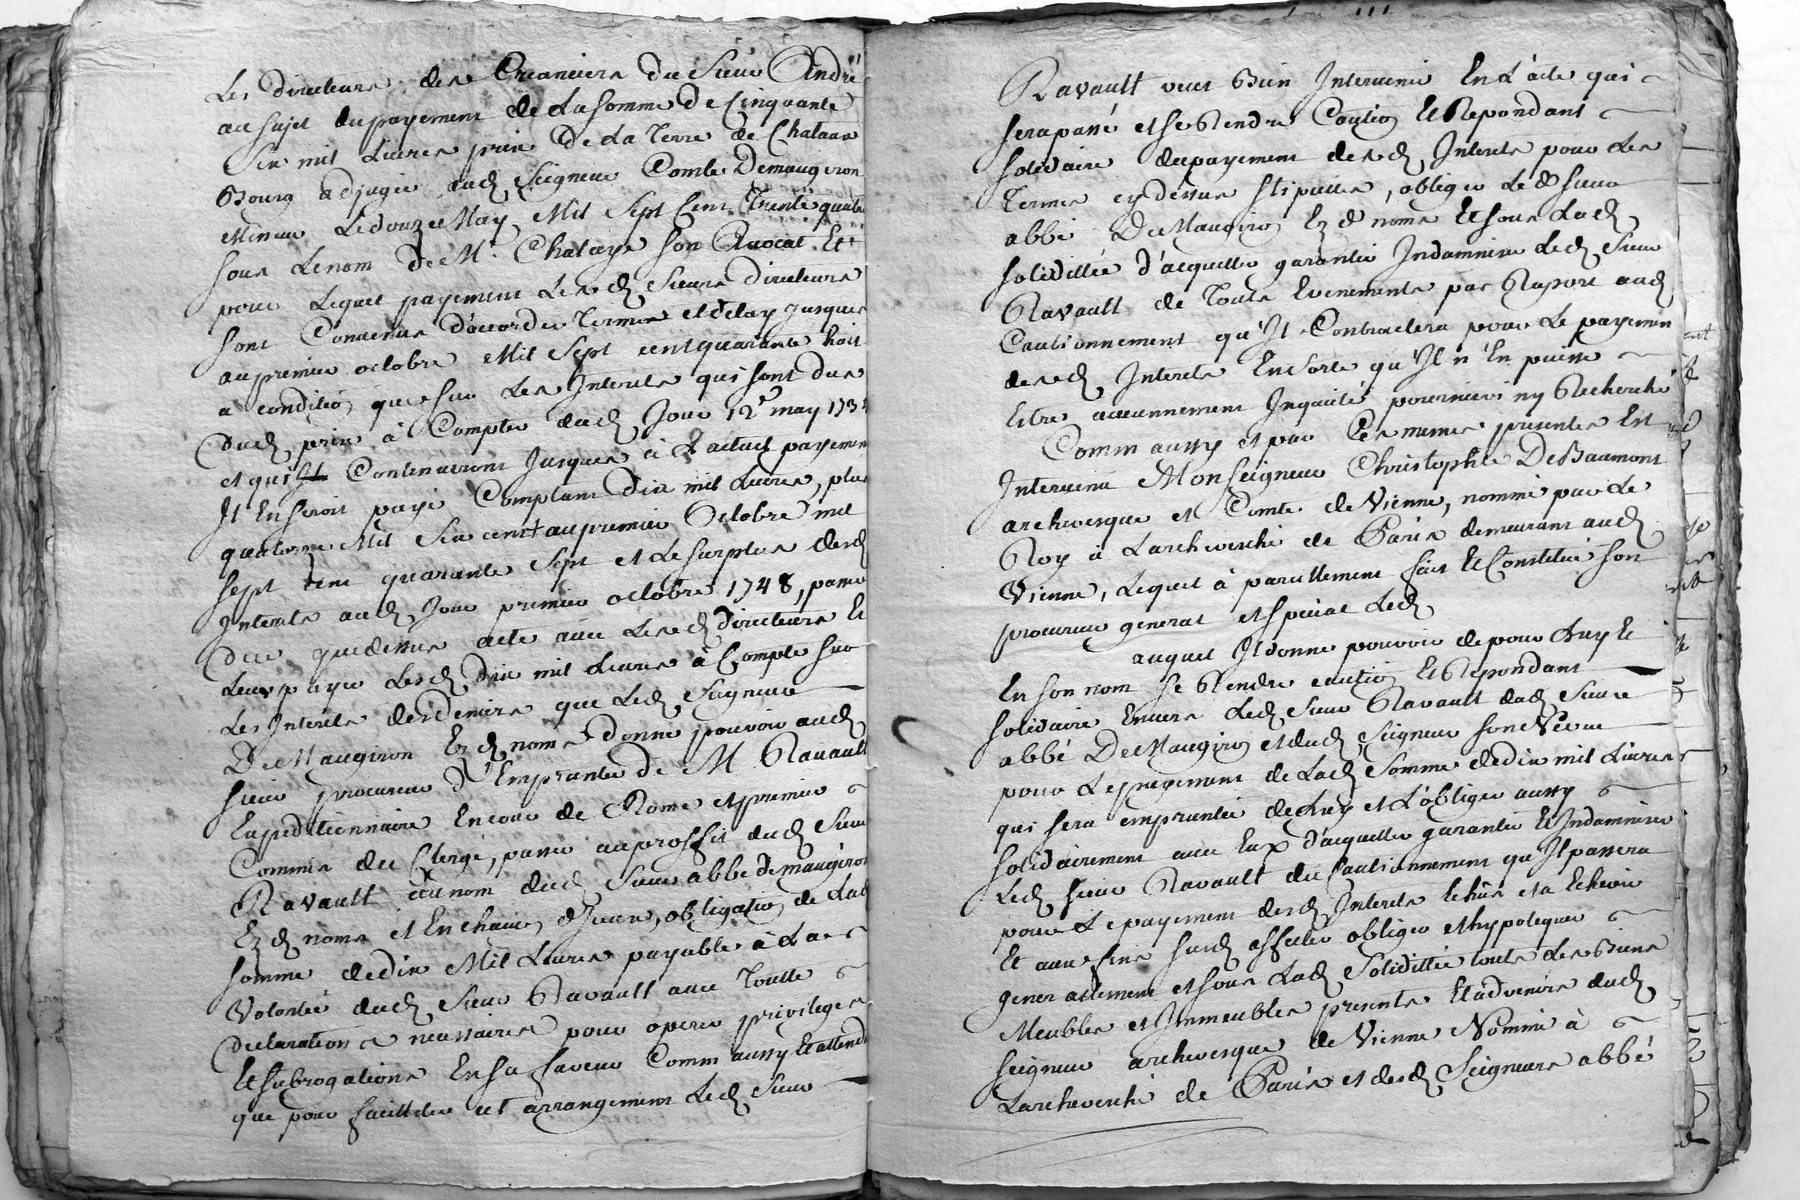 Les directeurs des Creanciers du Sieur André
au sujet du payement de La somme de Cinquante
Six mil Livres prix de La Terre de Chateau
Bourg adjugée aud. Seigneur Comte Demaugiron
Mineur Ledouze May Mil Sept Cent Trente quatre
sous Lenom de Me. Chataye son Avocat Et
pour Lequel payement Lesd. Sieurs directeurs
sont Convenus d'accorder Termes et delay Jusques
au premier octobre Mil Sept cent quarante huit
a conditio que sur Les Interets qui sont dus
dud. prix à Compter dud. Jour 12e may 1734
et qui Continueront Jusques à L'actuel payement
Il En seroit payé Comptant dix mil Livres, plus
quatorze Mil Six cent au premier Octobre mil
sept Cent quarante Sept et Le surplus desd.
Interets aud. Jour premier octobre 1748, passer
du que dessus acte avec Lesd. directeurs Et
Leur payer Lesd. dix mil Livres à Compte sur
Les Interets desdeniers que Led. Seigneur
De Maugiron Ez d. noms donne pouvoir aud.
sieur procureur d'Emprunter de M. Ravault
Expeditionnaire En cour de Rome et premier
Commis du Clergé, passer au proffit dud. Sieur
Ravault au nom dud. Sieur abbé de maugiron
Ez d. noms et En chacun d'Iceux, obligatio de Lad.
somme de dix Mil Livres payable à La
Volonté dud. Sieur Ravault avec Toutte
declarations necessaires pour operer privileges
Et subrogations En sa faveur Comm' aussy Et attendu
que pour faciliter cet arrangement Led. Sieur
Ravault veut Bien Intervenir En L'acte qui
sera passé et se Rendre Cautio Et Repondant
solidaire du payement desd. Interets pour Les
Termes cy dessus stipulés, obliger Le d. sieur
abbé De Maugiro Ez d. noms Et sous Lad.
soliditée d'acquitter garantir Indamniser Led. Sieur
Ravault de Touts Evenements par Raport aud.
Cautionnement qu'Il Contractera pour Le payement
desd. Interets En sorte qu'Il n'En puisse
Etre aucunnement Inquieté poursuivi ny Recherché
Comm' aussy et par Ces memes presentes Est
Intervenu Monseigneur Christophle De Baumont
archevesque et Comte de Vienne, nommé par Le
Roy à L'archevesché de Paris demeurant aud.
Vienne, Lequel à pareillement fait Et Constitué son
procureur general et special Led.
auquel Il donne pouvoir de pour Luy Et
En son nom se Rendre cautio Et Repondant
solidaire Envers Led. sieur Ravault dud. Sieur
abbé De Maugiro et dud. Seigneur son Neveu
pour Le payement de Lad. Somme de dix mil Livres
qui sera empruntée de Luy et L'obliger aussy
solidairement avec Eux d'acquitter garantir Et Indamniser
Led. sieur Ravault du Cautionnement qu'Il passera
pour Le payement desd. Interets Echus et a Echeoir
Et aux fins susd. affecter obliger et hypotequer
generallement et sous Lad. Soliditée touts Les Biens
Meubles et Immeubles presents Et advenirs dud.
seigneur archevesque de Vienne Nommé à
Larchevesché de Paris et desd. Seigneurs abbé